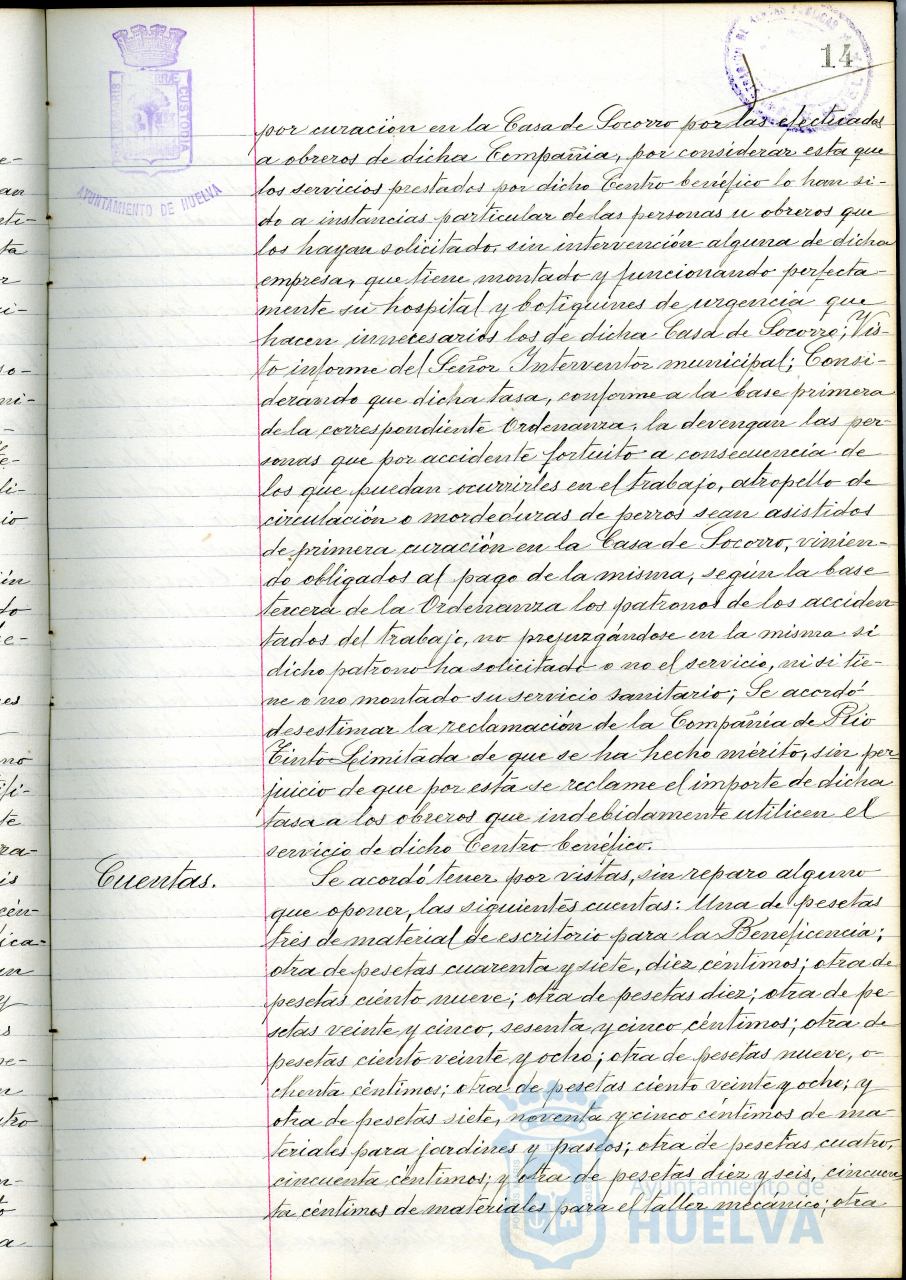 14
AYUNTAMIENTO DE HUELVA
CUSTODIA
por curación en la Casa de Socorro por las efectuadas
a obreros de dicha Compañia, por considerar esta que
los servicios prestados por dicho Centro benéfico lo han si-
do a instancias particular de las personas u obreros que
los hayan solicitado, sin intervención alguna de dicha
empresa, que tiene montado y funcionando perfecta-
mente su hospital y botiquines de urgencia que
hacen innecesarios los de dicha Casa de Socorro; Vis-
to informe del Señor Interventor municipal; Consi-
derando que dicha tasa, conforme a la base primera
de la correspondiente Ordenanza, la devengan las per-
sonas que por accidente fortuito a consecuencia de
los que puedan ocurrirles en el trabajo, atropello de
circulación o mordeduras de perros sean asistidos
de primera curación en la Casa de Socorro, vinien-
do obligados al pago de la misma, según la base
tercera de la Ordenanza los patronos de los acciden-
tados del trabajo, no prejuzgándose en la misma si
dicho patrono ha solicitado o no el servicio, ni si tie-
ne o no montado su servicio sanitario; Se acordó
desestimar la reclamación de la Compañía de Rio
Tinto Limitada de que se ha hecho mérito, sin per-
juicio de que por esta se reclame el importe de dicha
tasa a los obreros que indebidamente utilicen el
servicio de dicho Centro benéfico.
Cuentas. Se acordó tener por vistas, sin reparo alguno
que oponer, las siguientes cuentas: Una de pesetas
tres de material de escritorio para la Beneficencia;
otra de pesetas cuarenta y siete, diez céntimos; otra de
pesetas ciento nueve; otra de pesetas diez; otra de pe-
setas veinte y cinco, sesenta y cinco céntimos; otra de
pesetas ciento veinte y ocho; otra de pesetas nueve, o-
chenta céntimos; otra de pesetas ciento veinte y ocho; y
otra de pesetas siete, noventa y cinco céntimos de ma-
teriales para jardines y paseos; otra de pesetas cuatro,
cincuenta céntimos; y otra de pesetas diez y seis, cincuen-
ta céntimos de materiales para el taller mecánico; otra
Ayuntamiento de
HUELVA